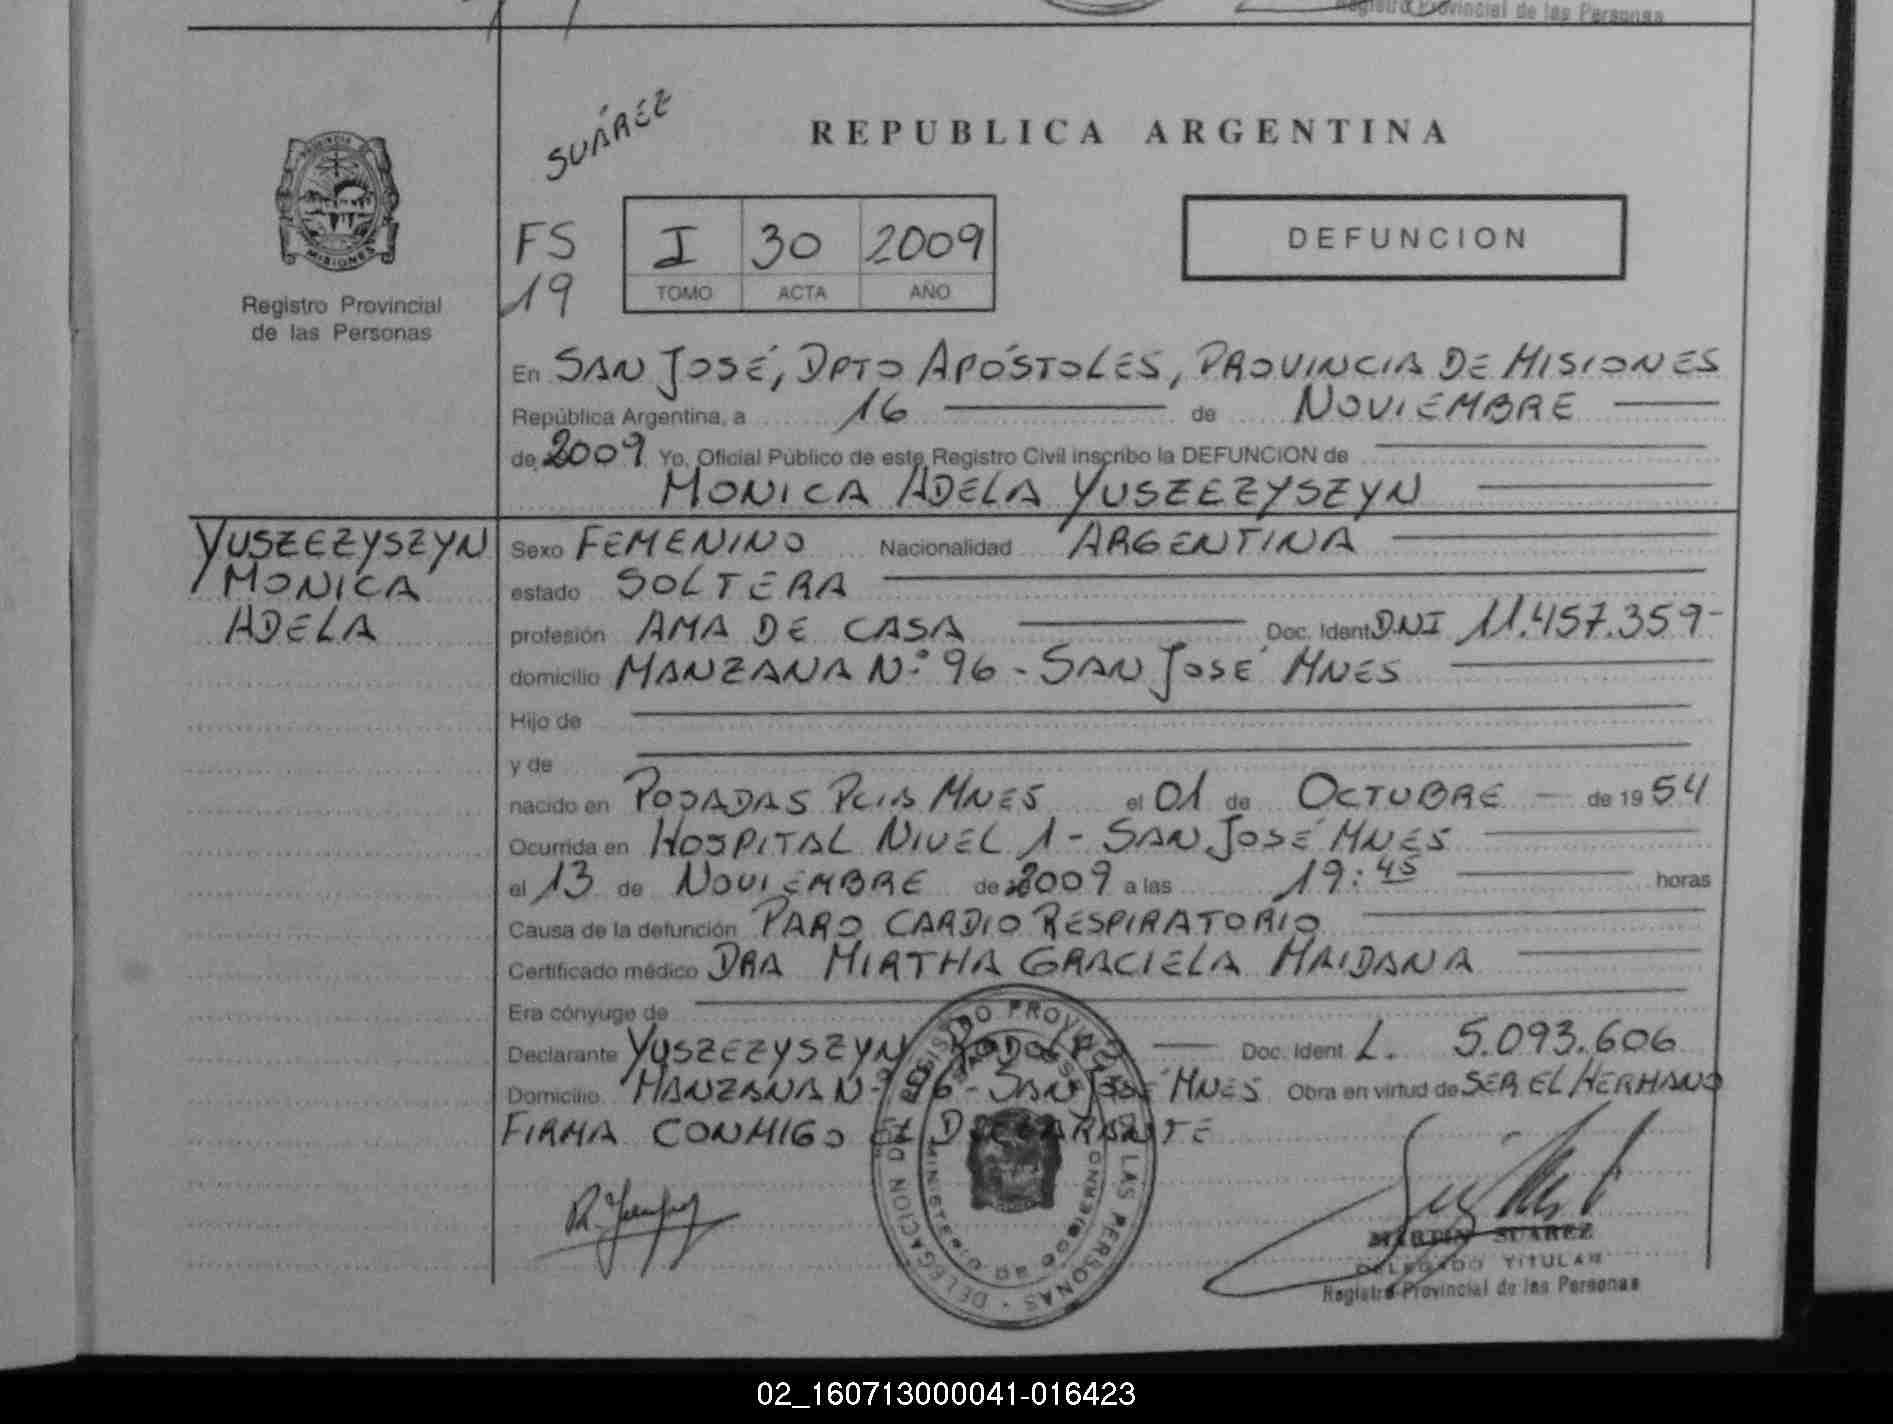 Registro Provincial de las Personas
SUÁREZ
REPUBLICA ARGENTINA
MISIONES
Registro Provincial
de las Personas
FS
19
I 30 2009
TOMO ACTA AÑO
DEFUNCION
En SAN JOSÉ, DPTO APÓSTOLES, PROVINCIA DE MISIONES
República Argentina, a 16 de NOVIEMBRE
de 2009 Yo, Oficial Público de este Registro Civil inscribo la DEFUNCION de
MONICA ADELA YUSZEZYSZYN
YUSZEZYSZYN
MONICA
ADELA
Sexo FEMENINO Nacionalidad ARGENTINA
estado SOLTERA
profesión AMA DE CASA Doc. Ident DNI 11.457.359-
domicilio MANZANA N° 96 - SAN JOSÉ MNES
Hijo de
y de
nacido en POSADAS PCIA MNES el 01 de OCTUBRE de 1954
Ocurrida en HOSPITAL NIVEL 1 - SAN JOSÉ MNES
el 13 de NOVIEMBRE de 2009 a las 19:45 horas
Causa de la defunción PARO CARDIO RESPIRATORIO
Certificado médico DRA MIRTHA GRACIELA MAIDANA
Era cónyuge de
Declarante YUSZEZYSZYN RODOLFO Doc. Ident L. 5.093.606
Domicilio MANZANA N° 96 - SAN JOSÉ MNES Obra en virtud de SER EL HERMANO
FIRMA CONMIGO EL DECLARANTE
REGISTRO PROVINCIAL DE LAS PERSONAS - DELEGACION
MINISTERIO DE GOBIERNO
MARTIN SUAREZ
DELEGADO TITULAR
Registro Provincial de las Personas
02_160713000041-016423